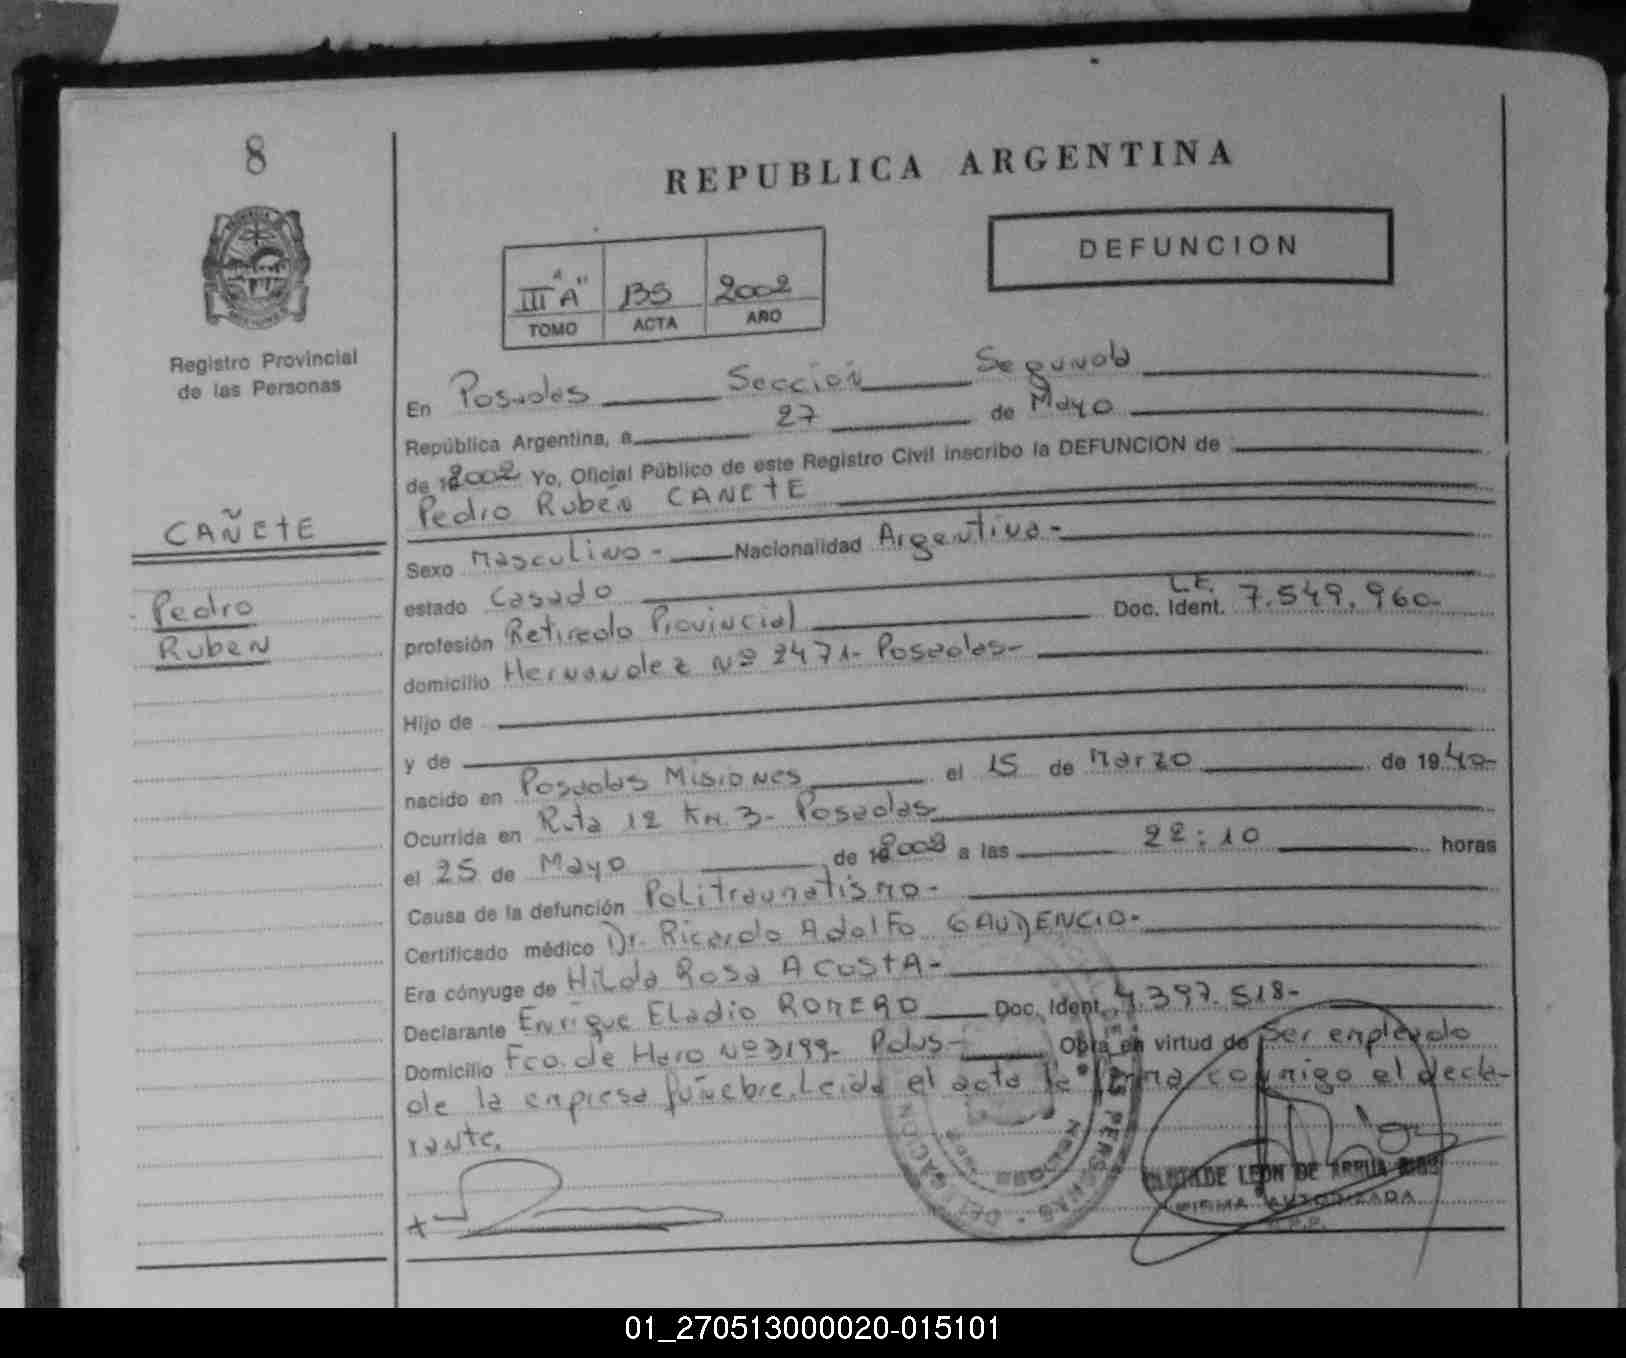 8
REPUBLICA ARGENTINA
DEFUNCION
III "A" 135 2002
TOMO ACTA AÑO
Registro Provincial
de las Personas
En Posadas Sección Segunda
República Argentina, a 27 de Mayo
de 2002 Yo, Oficial Público de este Registro Civil inscribo la DEFUNCION de :
Pedro Rubén CAÑETE
CAÑETE
Pedro
Ruben
Sexo Masculino - Nacionalidad Argentina -
estado Casado
profesión Retirado Provincial Doc. Ident. L.E. 7.549.960-
domicilio Hernandez Nº 2471- Posadas-
Hijo de
y de
nacido en Posadas Misiones el 15 de Marzo de 1940-
Ocurrida en Ruta 12 Km. 3- Posadas-
el 25 de Mayo de 2002 a las 22:10 horas
Causa de la defunción Politraumatismo-
Certificado médico Dr. Ricardo Adolfo GAUDENCIO-
Era cónyuge de Hilda Rosa ACOSTA-
Declarante Enrique Eladio ROMERO Doc. Ident. 4.397.518-
Domicilio Fco. de Haro Nº 3199- Pdas- Obra en virtud de Ser empleado
de la empresa fúnebre. Leída el acta la firma conmigo el decla-
rante.
CLOTILDE LEON DE ARRUA
FIRMA AUTORIZADA
01_270513000020-015101